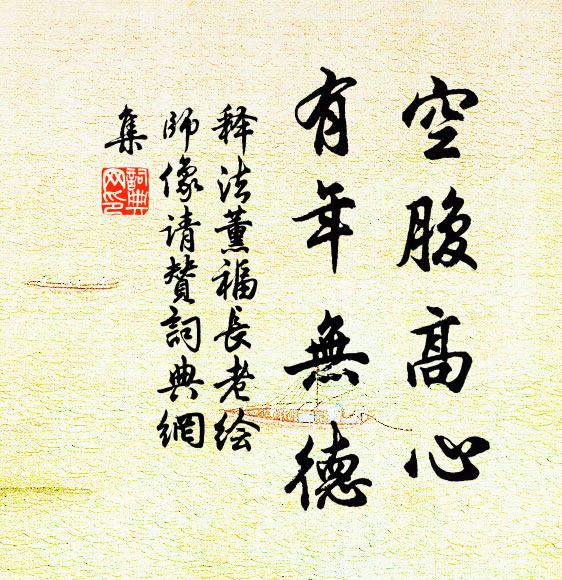 空腹高心
有年無德
释法薰福長老绘
師像请贊詞典網
集
詞典網印